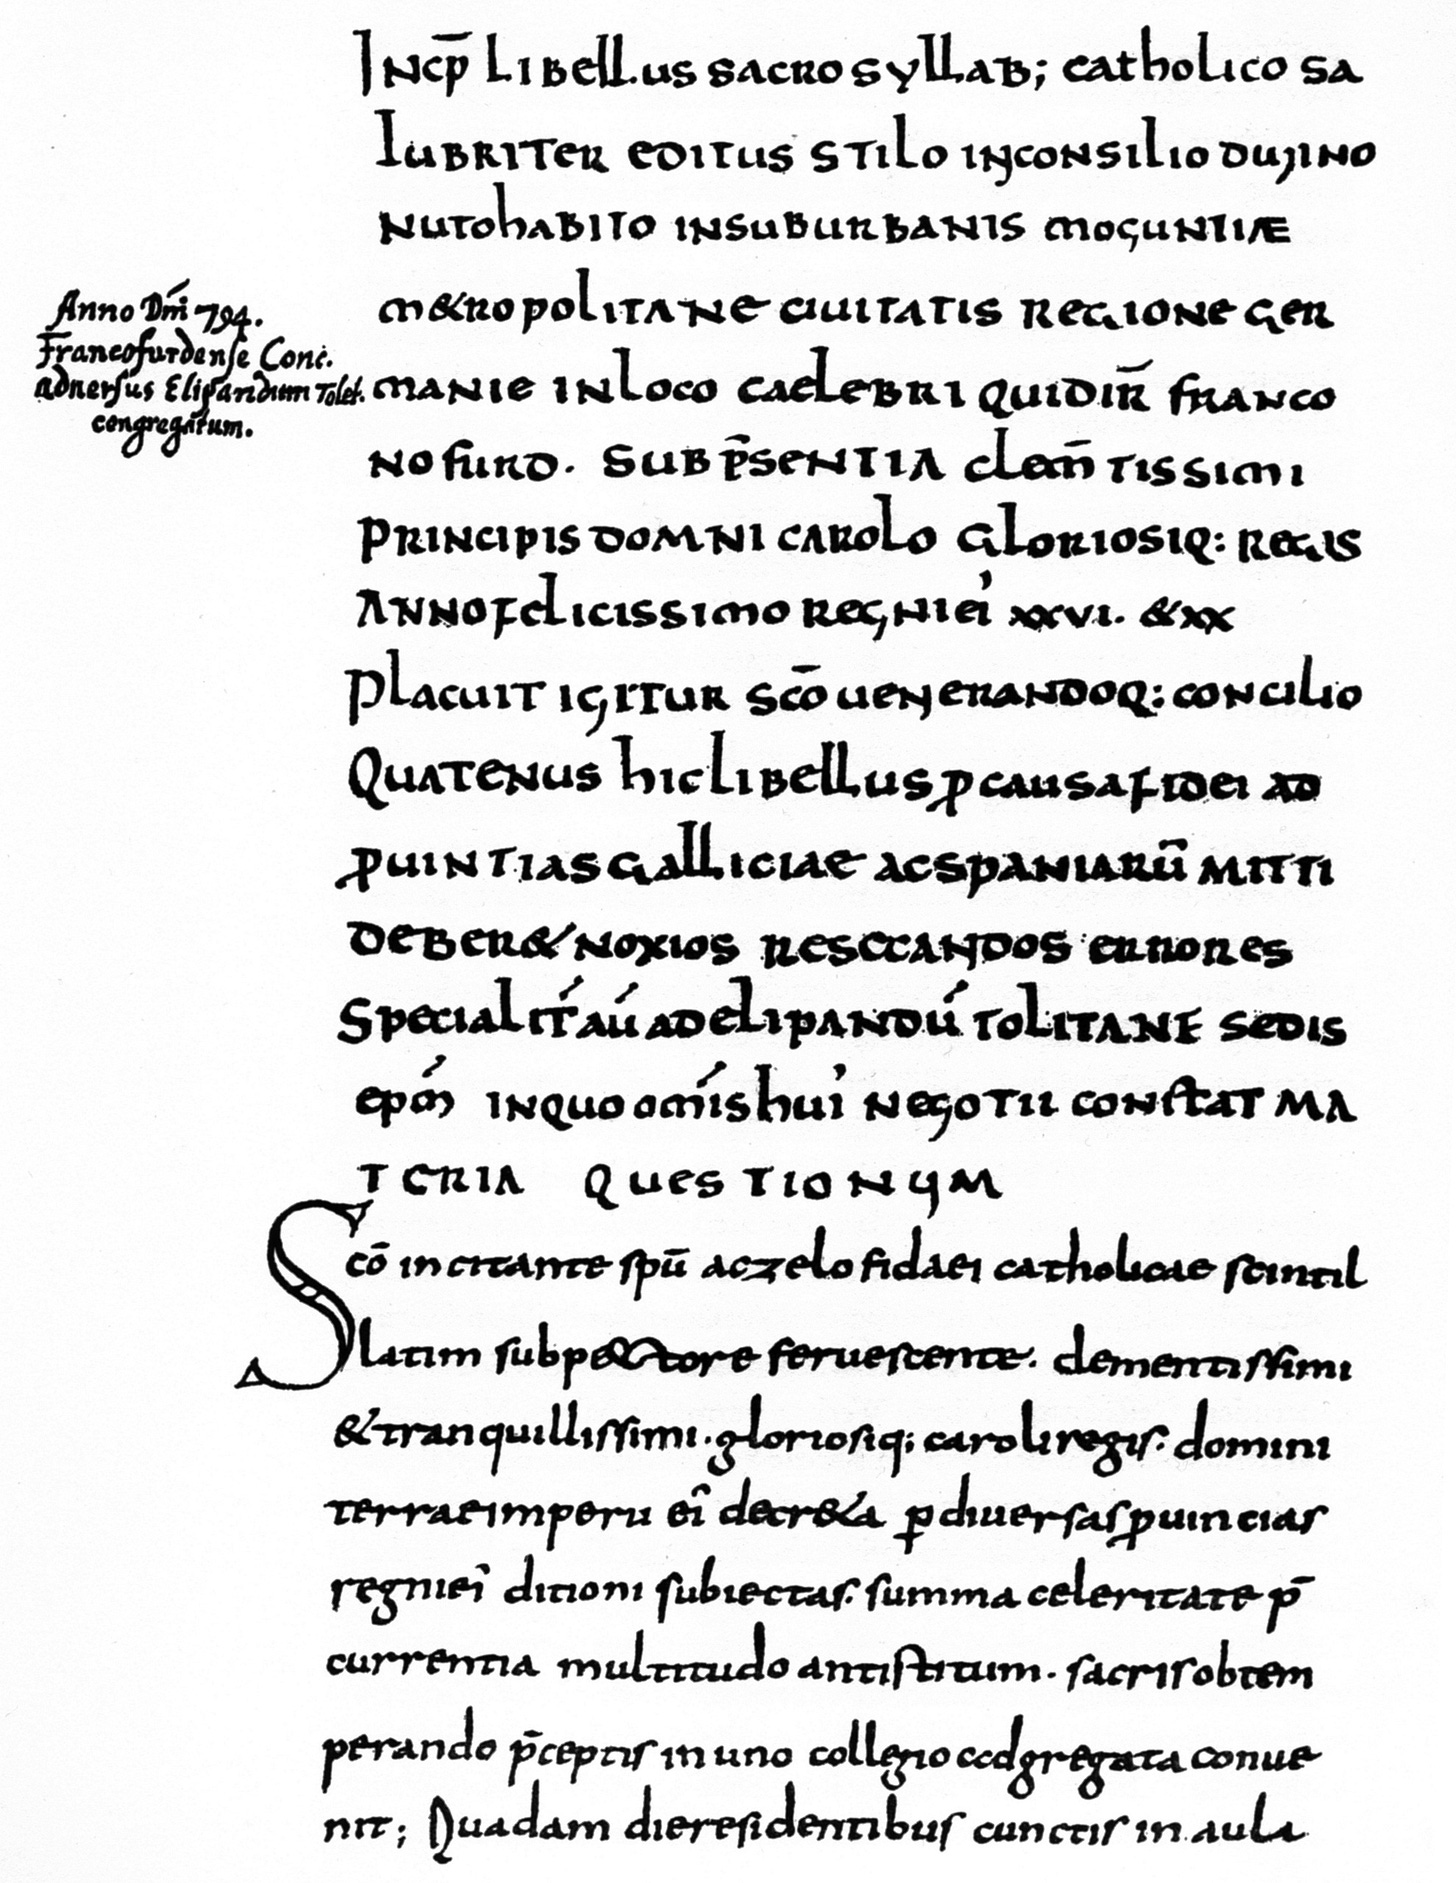 INCP̄ LIBELLUS SACROSYLLAB; CATHOLICO SA
LUBRITER EDITUS STILO INCONSILIO DUJINO
NUTOHABITO INSUBURBANIS MOGUNTIÆ
M&ROPOLITANE CIUITATIS REGIONE GER
MANIE INLOCO CAELEBRI QUIDIR̄ FRANCO
NOFURD. SUBP̄SENTIA CLEM̄TISSIMI
PRINCIPIS DOMNI CAROLO GLORIOSIQ: REGIS
ANNOFELICISSIMO REGNIEI' XXVI. &XX
PLACUIT IGITUR SCŌ UENERANDOQ: CONCILIO
QUATENUS HICLIBELLUS ꝓ CAUSAFIDEI AD
ꝓUINTIAS GALLICIAE ACSPANIARŪ MITTI
DEBER& NOXIOS RESECANDOS ERRORES
SPECIALIT́ AÚ ADELIPANDÚ TOLITANE SEDIS
EPḾ INQUO OMŃIS HUI' NEGOTII CONSTAT MA
TERIA QUESTIONUM
Scō incitante spū aczelo fidaei catholicae scintil
latim subpectore feruescente. clementissimi
&tranquillissimi. gloriosiq; caroli regis. domini
terrae imperii ei' decr&a ꝑ diuersas ꝓuincias
regniei' ditioni subiectas. summa celeritate p̄
currentia multitudo antistitum. sacris obtem
perando p̄ceptis in uno collegio adgregata conue
nit; Quadam dieresidentibus cunctis in aula
Anno Dm̄i 794.
Francofurdense Conc.
aduersus Elipandum Tolet.
congregatum.